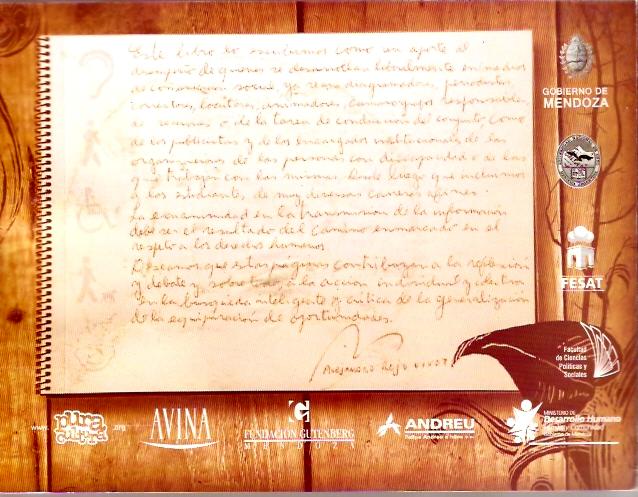 Este libro lo escribimos como un aporte al
desempeño de quienes se desarrollan laboralmente en medios
de comunicación social, ya sean diagramadores, periodistas
locutores, animadores, camarógrafos responsables,
de secciones o de la tarea de conducción del conjunto, como
de los publicistas y de los encargados institucionales de las
organizaciones de las personas con discapacidad o de los
que trabajan con las mismas. Desde luego que incluimos
a los estudiantes, de muy diversas carreras afines.
La ecuanimidad en la transmisión de la información
debe ser el resultado del camino enmarcado en el
respeto a los derechos humanos
Deseamos que estas páginas contribuyan a la reflexión
y debate y, sobre todo, a la acción individual y colectiva
en la búsqueda inteligente y crítica de la generalización
de la equiparación de oportunidades.
Alejandro Rojo Vivot
GOBIERNO DE
MENDOZA
FESAT
Facultad
de Ciencias
Políticas y
Sociales
www. pura cultura .org
AVINA
FUNDACIÓN GUTENBERG
MENDOZA
ANDREU
Felipe Andreu e hijos
MINISTERIO DE
Desarrollo Humano